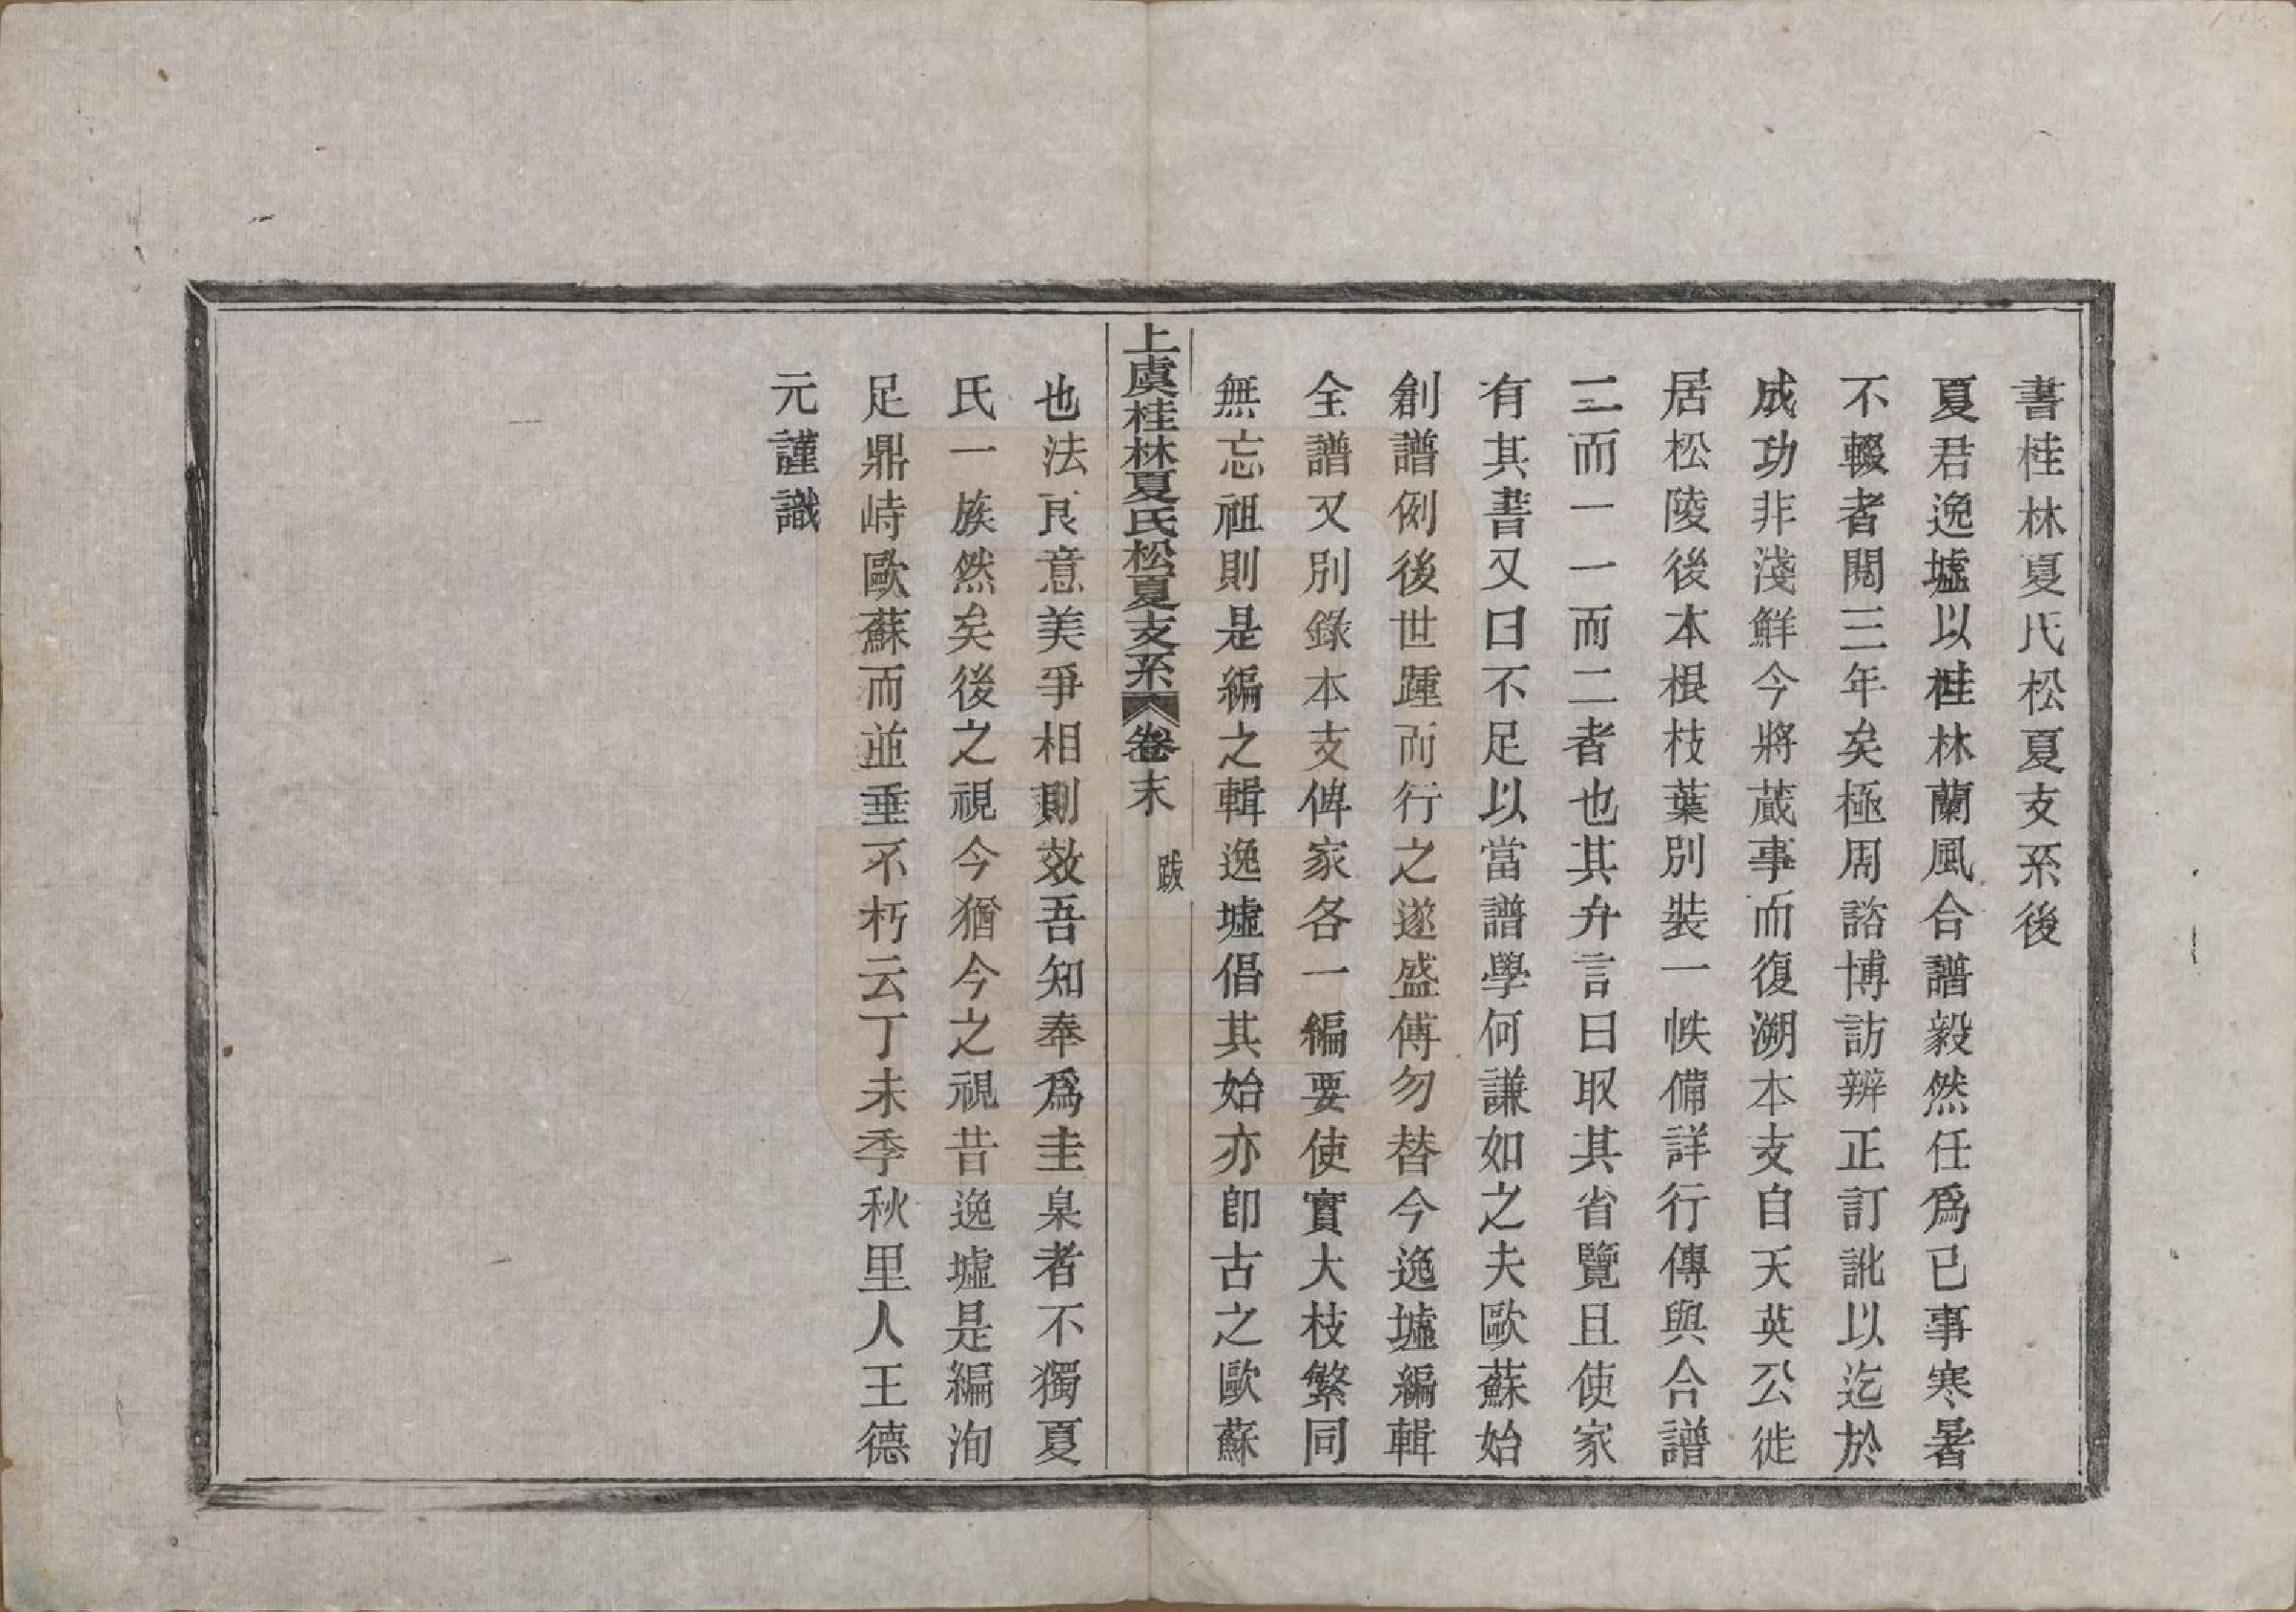 書桂林夏氏松夏支系後
夏君逸墟以桂林蘭風合譜毅然任爲已事寒暑
不輟者閱三年矣極周諮博訪辨正訂訛以迄於
成功非淺鮮今將蕆事而復溯本支自天英公徙
居松陵後本根枝葉別裝一帙備詳行傳與合譜
二而一一而二者也其弁言曰取其省覽且使家
有其書又曰不足以當譜學何謙如之夫歐蘇始
創譜例後世踵而行之遂盛傅勿替今逸墟編輯
全譜又別錄本支俾家各一編要使實大枝繁同
無忘祖則是編之輯逸墟倡其始亦卽古之歐蘇
上虞桂林夏氏松夏支系 卷末 跋
也法良意美爭相則效吾知奉爲圭臬者不獨夏
氏一族然矣後之視今猶今之視昔逸墟是編洵
足鼎峙歐蘇而並垂不朽云丁未季秋里人王德
元謹識